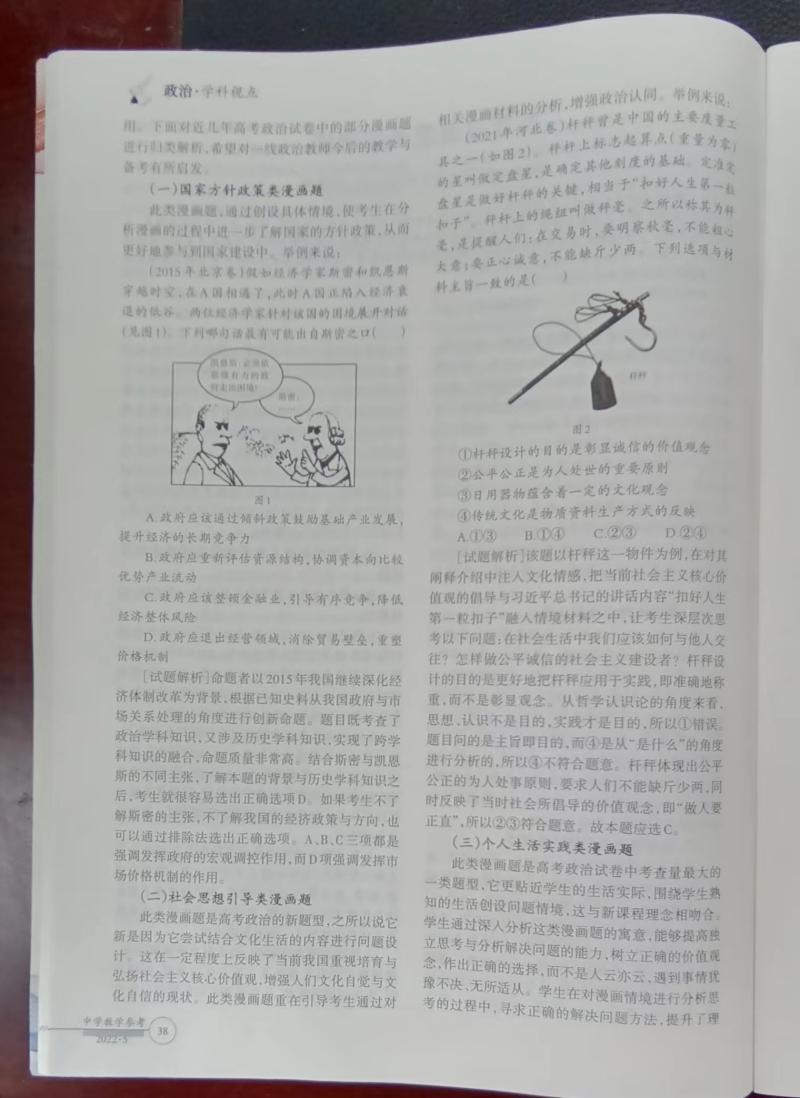 政治·学科视点
用。下面对近几年高考政治试卷中的部分漫画题
进行归类解析,希望对一线政治教师今后的教学与
备考有所启发。
(一)国家方针政策类漫画题
此类漫画题,通过创设具体情境,使考生在分
析漫画的过程中进一步了解国家的方针政策,从而
更好地参与到国家建设中。举例来说:
(2015年北京卷)假如经济学家斯密和凯恩斯
穿越时空,在A国相遇了,此时A国正陷入经济衰
退的低谷。两位经济学家针对该国的困境展开对话
(见图1)。下列哪句话最有可能出自斯密之口(  )
凯恩斯:必须依
靠强有力的政
府走出困境!
斯密:
……
图1
A.政府应该通过倾斜政策鼓励基础产业发展,
提升经济的长期竞争力
B.政府应重新评估资源结构,协调资本向比较
优势产业流动
C.政府应该整顿金融业,引导有序竞争,降低
经济整体风险
D.政府应退出经营领域,消除贸易壁垒,重塑
价格机制
[试题解析]命题者以2015年我国继续深化经
济体制改革为背景,根据已知史料从我国政府与市
场关系处理的角度进行创新命题。题目既考查了
政治学科知识,又涉及历史学科知识,实现了跨学
科知识的融合,命题质量非常高。结合斯密与凯恩
斯的不同主张,了解本题的背景与历史学科知识之
后,考生就很容易选出正确选项D。如果考生不了
解斯密的主张,不了解我国的经济政策与方向,也
可以通过排除法选出正确选项。A、B、C三项都是
强调发挥政府的宏观调控作用,而D项强调发挥市
场价格机制的作用。
(二)社会思想引导类漫画题
此类漫画题是高考政治的新题型,之所以说它
新是因为它尝试结合文化生活的内容进行问题设
计。这在一定程度上反映了当前我国重视培育与
弘扬社会主义核心价值观,增强人们文化自觉与文
化自信的现状。此类漫画题重在引导考生通过对
相关漫画材料的分析,增强政治认同。举例来说:
(2021年河北卷)杆秤曾是中国的主要度量工
具之一(如图2)。秤杆上标志起算点(重量为零)
的星叫做定盘星,是确定其他刻度的基础。定准定
盘星是做好杆秤的关键,相当于“扣好人生第一粒
扣子”。秤杆上的绳纽叫做秤毫。之所以称其为秤
毫,是提醒人们:在交易时,要明察秋毫,不能粗心
大意;要正心诚意,不能缺斤少两。下列选项与材
料主旨一致的是(  )
杆秤
图2
①杆秤设计的目的是彰显诚信的价值观念
②公平公正是为人处世的重要原则
③日用器物蕴含着一定的文化观念
④传统文化是物质资料生产方式的反映
A.①③ B.①④ C.②③ D.②④
[试题解析]该题以杆秤这一物件为例,在对其
阐释介绍中注入文化情感,把当前社会主义核心价
值观的倡导与习近平总书记的讲话内容“扣好人生
第一粒扣子”融入情境材料之中,让考生深层次思
考以下问题:在社会生活中我们应该如何与他人交
往?怎样做公平诚信的社会主义建设者?杆秤设
计的目的是更好地把杆秤应用于实践,即准确地称
重,而不是彰显观念。从哲学认识论的角度来看,
思想、认识不是目的,实践才是目的,所以①错误。
题目问的是主旨即目的,而④是从“是什么”的角度
进行分析的,所以④不符合题意。杆秤体现出公平
公正的为人处事原则,要求人们不能缺斤少两,同
时反映了当时社会所倡导的价值观念,即“做人要
正直”,所以②③符合题意。故本题应选C。
(三)个人生活实践类漫画题
此类漫画题是高考政治试卷中考查量最大的
一类题型,它更贴近学生的生活实际,围绕学生熟
知的生活创设问题情境,这与新课程理念相吻合。
学生通过深入分析这类漫画题的寓意,能够提高独
立思考与分析解决问题的能力,树立正确的价值观
念,作出正确的选择,而不是人云亦云,遇到事情犹
豫不决、无所适从。学生在对漫画情境进行分析思
考的过程中,寻求正确的解决问题方法,提升了理
中学教学参考
2022·5
38